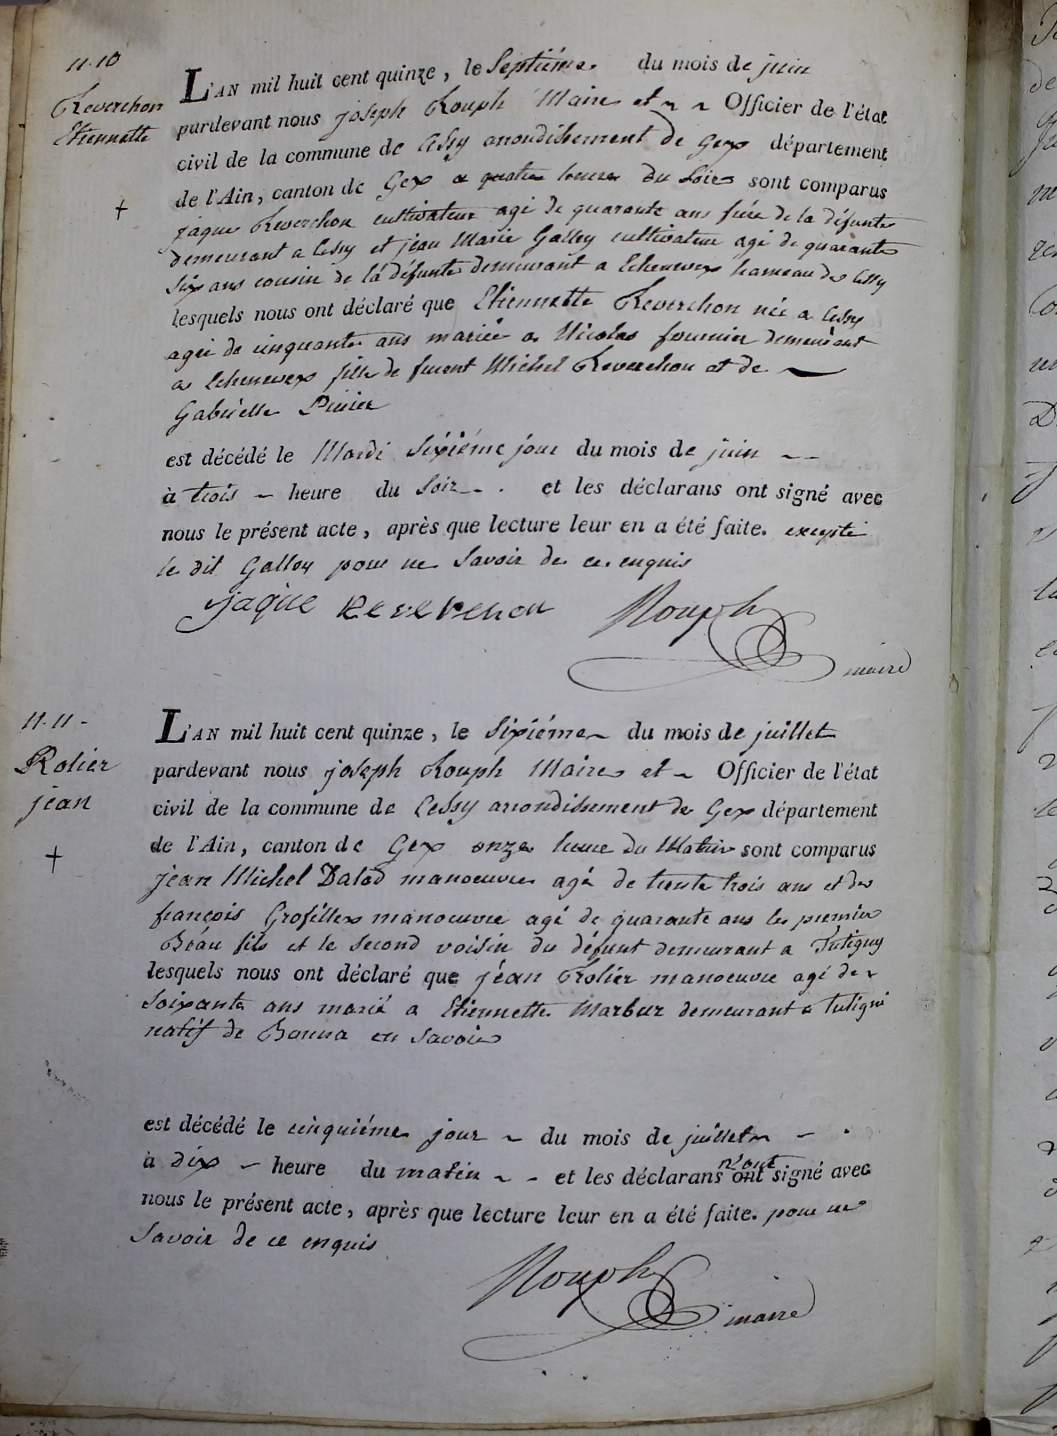 11.10
Reverchon
Etiennette
L'AN mil huit cent quinze, le Septiéme du mois de juin
pardevant nous joseph Rouph Maire et Officier de l'état
civil de la commune de Cessy arrondissement de Gex département
de l'Ain, canton de Gex a quatre heures du Soir sont comparus
jaque Reverchon cultivateur agé de quarante ans frére de la défunte
demeurant a Cessy et jean Marie Galley cultivateur agé de quarante
Six ans cousin de la défunte demeurant a Echenevex hameau de Cessy
lesquels nous ont déclaré que Etiennette Reverchon née a Cessy
agée de cinquante ans mariée a Nicolas fournier demeurant
a Echenevex fille de furent Michel Reverchon et de
Gabrielle
est décédé le Mardi Sixiéme jour du mois de juin
à trois heure du Soir et les déclarans ont signé avec
nous le présent acte, après que lecture leur en a été faite. excepté
le dit Galley pour ne Savoir de ce enquis
jaque Reverchon Rouph
maire
11.11
Rolier
jean
L'AN mil huit cent quinze, le Sixiéme du mois de juillet
pardevant nous joseph Rouph Maire et Officier de l'état
civil de la commune de Cessy arrondissement de Gex département
de l'Ain, canton de Gex onze heure du Matin sont comparus
jean Michel Dalod manoeuvre agé de trente trois ans et de
françois Grosfillex manoeuvre agé de quarante ans le premier
Béau fils et le second voisin du défunt demeurant a Tutigny
lesquels nous ont déclaré que jéan Rolier manoeuvre agé de
Soixante ans marié a Etiennette Marbur demeurant a Tutigni
natif de Bonna en Savoie
est décédé le cinquiéme jour du mois de juillet
à dix heure du matin et les déclarans n'ont ont signé avec
nous le présent acte, après que lecture leur en a été faite. pour ne
Savoir de ce enquis
Rouph
maire